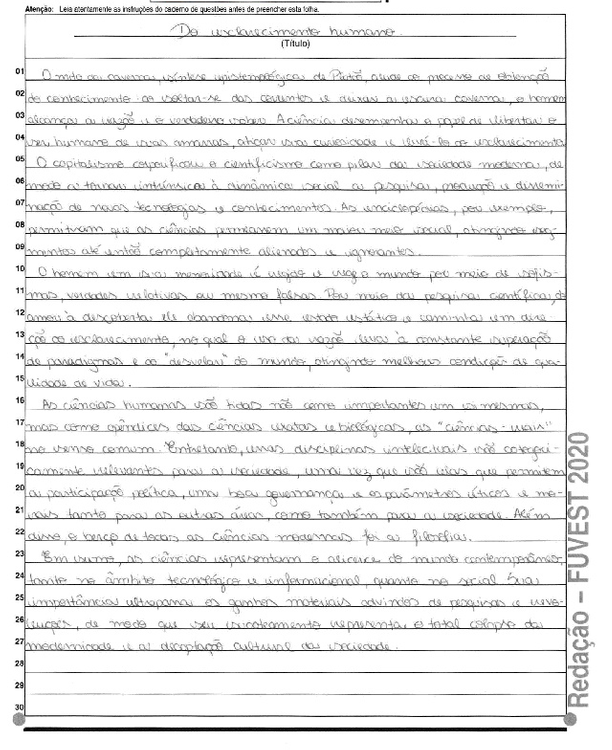 Atenção: Leia atentamente as instruções do caderno de questões antes de preencher esta folha.
Do esclarecimento humano.
(Título)
01 O mito da caverna, síntese epistemológica de Platão, alude ao processo de obtenção
02 de conhecimento: ao soltar-se das correntes e deixar a escura caverna, o homem
03 alcança a razão e o verdadeiro saber. A ciência desempenha o papel de libertar o
04 ser humano de suas amarras, atiçar sua curiosidade e levá-lo ao esclarecimento.
05 O capitalismo corporificou o cientificismo como pilar da sociedade moderna, de
06 modo a tornar intrínsecas à dinâmica social a pesquisa, produção e dissemi-
07 nação de novas tecnologias e conhecimentos. As enciclopédias, por exemplo,
08 permitiram que as ciências permeassem um maior meio social, atingindo seg-
09 mentos até então completamente alienados e ignorantes.
10 O homem em sua menoridade é vegao e vaga o mundo por meio de sofis-
11 mas, verdades relativas ou mesmo falsas. Por meio da pesquisa científica, do
12 amor à descoberta ele abandona esse estado estático e caminha em dire-
13 ção ao esclarecimento, no qual o uso da razão leva à constante superação
14 de paradigmas e ao "desvelar" do mundo, atingindo melhores condição de qua-
15 lidade de vida.
16 As ciências humanas são tidas não como importantes em si mesmas,
17 mas como apêndices das ciências exatas e biológicas, as "ciências-mais"
18 no senso comum. Entretanto, essas disciplinas intelectuais são categori-
19 camente relevantes para a sociedade, uma vez que são elas que permitem
20 a participação política, uma boa governança e os parâmetros éticos e mo-
21 rais tanto para as outras áreas, como também para a sociedade. Além
22 disso, o berço de todas as ciências modernas foi a filosofia.
23 Em suma, as ciências representam o alicerce do mundo contemporâneo,
24 tanto no âmbito tecnológico e informacional, quanto no social. Sua
25 importância ultrapassa os ganhos materiais advindos de pesquisas e revo-
26 luções, de modo que seu sucateamento representa o total colapso da
27 modernidade e a decaptação cultural da sociedade.
28
29
30
Redação – FUVEST 2020